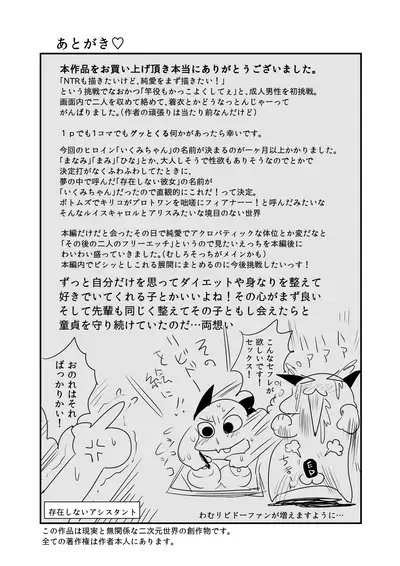 あとがき♡
本作品をお買い上げ頂き本当にありがとうございました。
「NTRも描きたいけど、純愛をまず描きたい！」
という挑戦でなおかつ「竿役もかっこよくしてぇ」と、成人男性を初挑戦。
画面内で二人を収めて絡めて、着衣とかどうなっとんじゃーって
がんばりました。（作者の頑張りは当たり前なんだけど）
1ｐでも1コマでもグッとくる何かがあったら幸いです。
今回のヒロイン「いくみちゃん」の名前が決まるのが一ヶ月以上かかりました。
「まなみ」「まみ」「ひな」とか、大人しそうで性欲もありそうなのでとかで
決定打がなくふわふわしてたときに、
夢の中で呼んだ「存在しない彼女」の名前が
「いくみちゃん」だったので直観的にこれだ！って決定。
ボトムズでキリコがプロトワンを咄嗟にフィアナーー！と呼んだみたいな
そんなルイスキャロルとアリスみたいな境目のない世界
本編だけだと会ったその日で純愛でアクロバティックな体位とか変だなと
「その後の二人のフリーエッチ」というので見たいえっちを本編後に
わいわい盛っていきました。（むしろそっちがメインかも）
本編内でビシッとしこれる展開にまとめるのに今後挑戦したいっす！
ずっと自分だけを思ってダイエットや身なりを整えて
好きでいてくれる子とかいいよね！その心がまず良い
そして先輩も同じく整えてその子ともし会えたらと
童貞を守り続けていたのだ…両想い
こんなセフレが
欲しいです！
セックス！
おのれはそれ
ばっかりかい！
ED
存在しないアシスタント
わむリビドーファンが増えますように…
この作品は現実と無関係な二次元世界の創作物です。
全ての著作権は作者本人にあります。